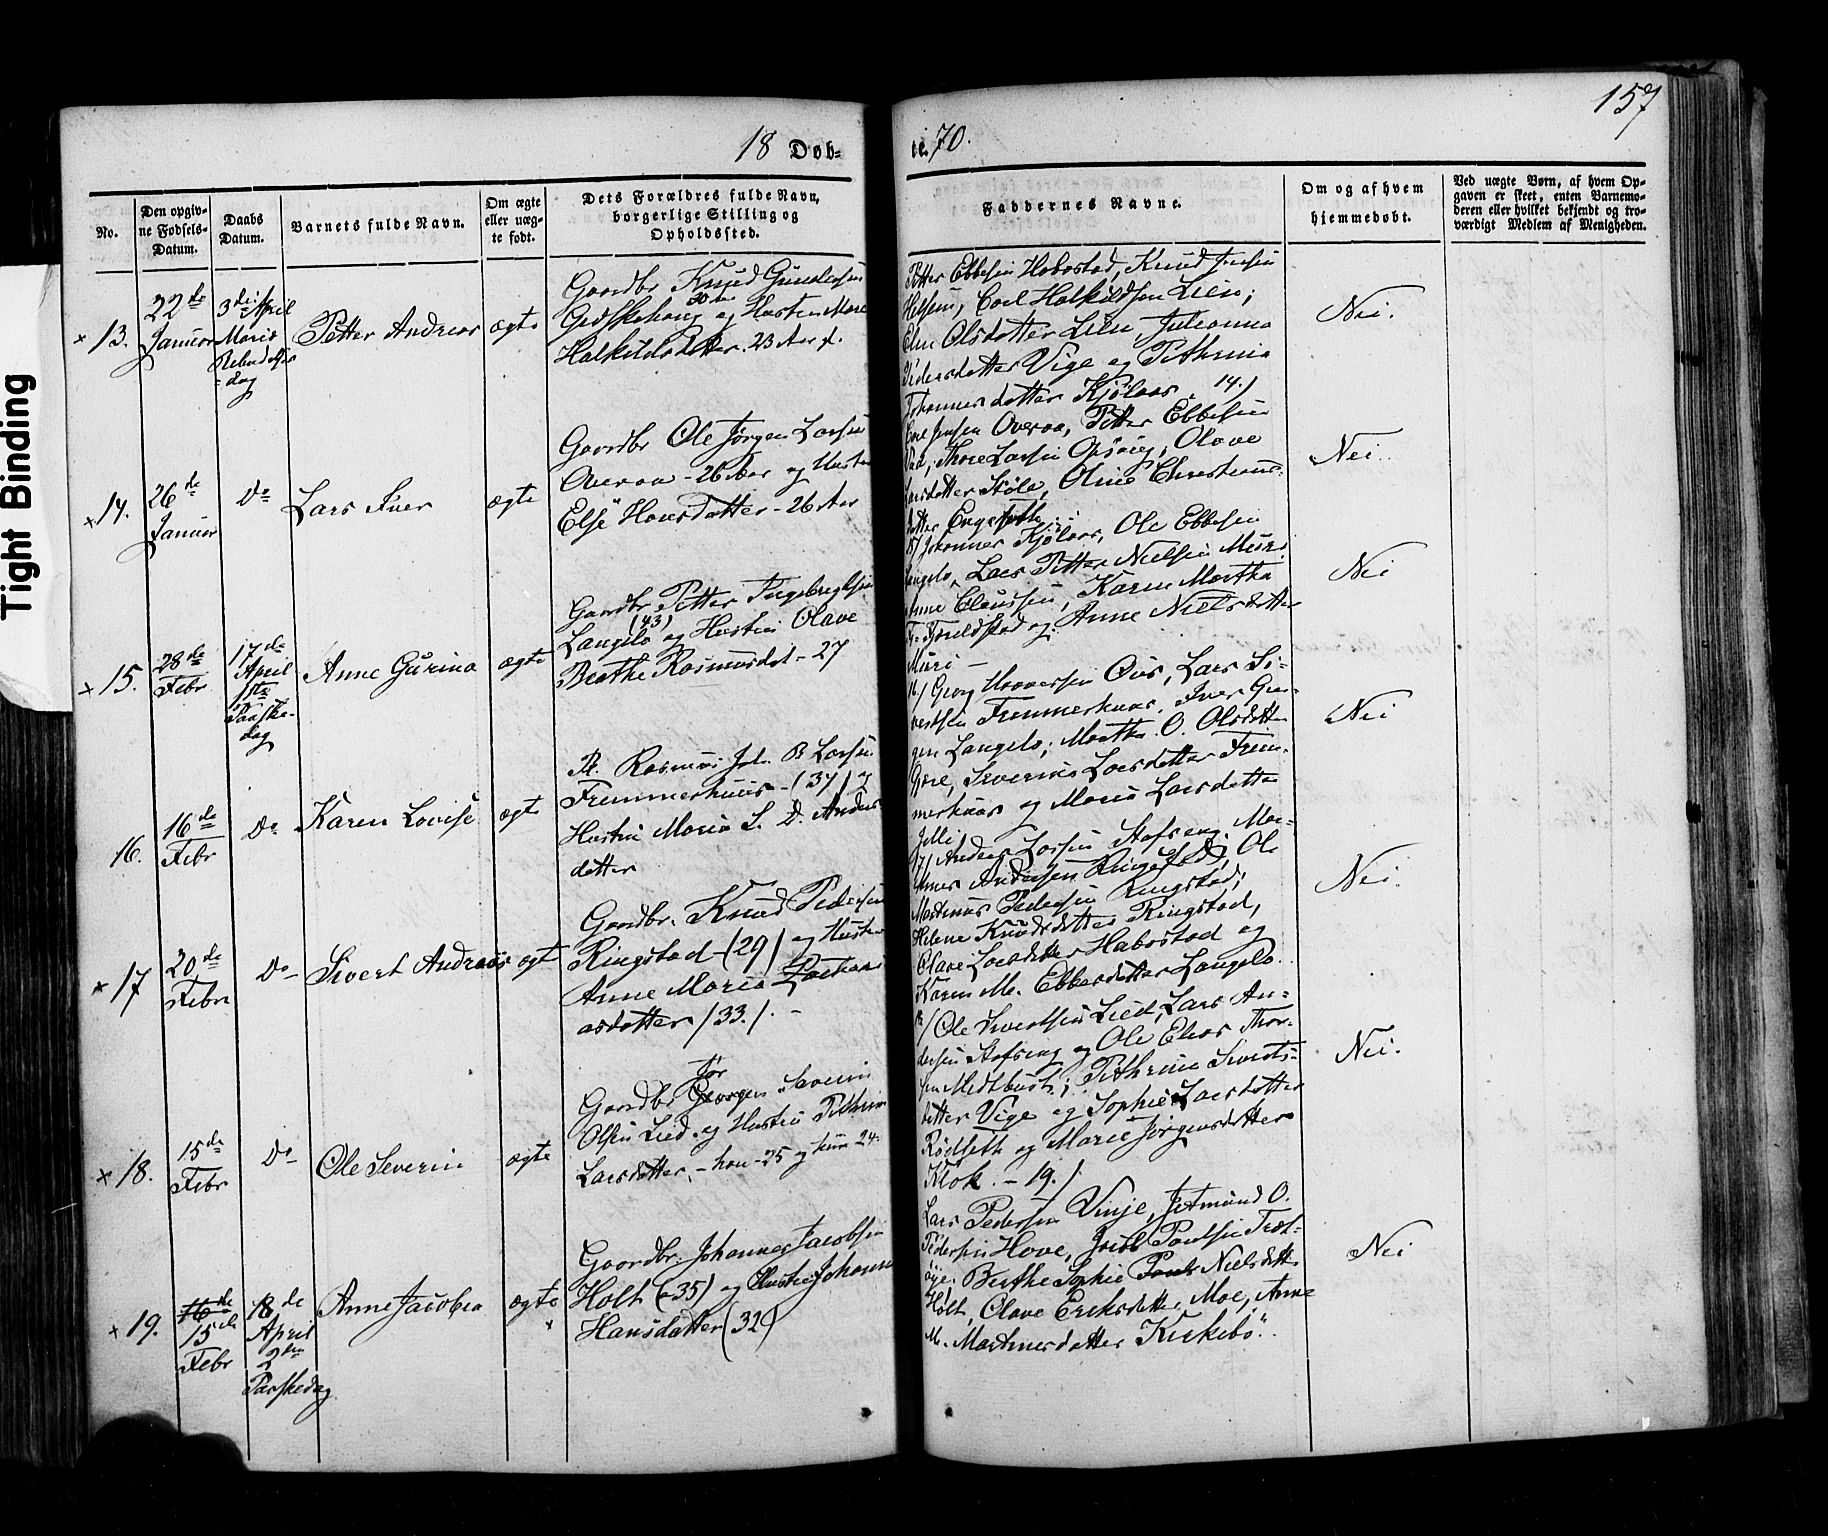 157
18 Døb-
te. 70.
No.
Den opgiv-
ne Fødsels-
Datum.
Daabs
Datum.
Barnets fulde Navn.
Om ægte
eller uæg-
te født.
Dets Forældres fulde Navn,
borgerlige Stilling og
Opholdssted.
Faddernes Navne.
Om og af hvem
hjemmedøbt.
Ved uægte Børn, af hvem Op-
gaven er skeet, enten Barnemo-
deren eller hvilket bekjendt og tro-
værdigt Medlem af Menigheden.
× 13.
22de
Januar
3die April
Mariæ
dag
Petter Andreas
ægte
Gaardbr Knud Gundersen
30 Aar
og Hustru Mare
Halkildsdatter. 23 Aar
Petter Ebbesen Habostad, Knud Jensen
Helsem, Carl Halkildsen Lien;
Elen Olsdatter Lien, Julianna
Pedersdatter Vige og Pethrine
Johannesdatter Kjølaas. 14.)
Nei.
× 14.
26de
Januar
Do
Lars Iver
ægte
Gaardbr Ole Jørgen Larsen
Overaa - 26 Aar og Hustru
Else Hansdatter - 26 Aar
Jensen Overaa, Petter Ebbesen
Thore Larsen Opsvig, Olave
Larsdatter Støle, Oline Christians-
datter Engesæth
Nei.
× 15.
28de
Febr
17de
April
1ste
Paaske-
dag
Anne Gurina
ægte
Gaardbr Petter Ingebregtsen
(43)
Langelo og Hustru Olave
Berthe Rasmusdat - 27
15/ Johannes Kjølaas, Ole Ebbesen
Langelo, Lars Petter Nielsen Muri
Anne Claussen, Karen Martha
Fjeldstad og Anne Nielsdatter
Muri -
Nei
16.
16de
Febr
Do
Karen Lovise
ægt
Rasmus Joh. B Larsen
Fremmerhuus - (37) og
Hustru Maria S. D. Anders
datter
16/ Georg Hansen Øvs, Lars Si-
vertsen Fremmerhuus, Iver Gre-
gen Langelo; Martha O. Olsdatter
Gere, Severine Larsdatter Frem-
merhuus og Maria Larsdatter
Nei
× 17
20de
Febr
Do
Sivert Andreas
ægt
Gaardbr. Knud Pedersen
Ringstad (29) og Hustru
Anne Maria Zacharias
asdatter (33). -
17/ Anders Larsen Hofseng, Mar-
thinus Andersen Ringstad, Ole
Martinus Pedersen Ringstad;
Helene Knudsdatter Ringstad,
Olave Larsdatter Habostad og
Karen M. Ebbesdatter Langelo.
Nei.
× 18.
15de
Febr
Do
Ole Severin
ægte
Jør
Gaardbr Jørgen Severin
Olsen Lied. og Hustru Pethrine
Larsdatter, - han - 25 og hun 24.
18/ Ole Sivertsen Lied, Lars An-
dersen Hofseng og Ole Elias Thor-
sen Medtbust; Pethrine Siverts-
datter Vige og Sophie Larsdatter
Rødseth og Marie Jørgensdatter
Klok. - 19.)
Nei.
× 19.
16de
15de
Febr
18de
April
2den
Paaskedag
Anne Jacobea
ægte
×
Gaardbr. Johannes Jacobsen
Holt (35) og Hustru Johanne
Hansdatter (32)
Lars Pedersen Vinje, Jetmund O.
Pedersen Hove, Jacob Paulsen Træt-
øye. Berthe Sophie Pauls Nielsdatt.
Holt, Olave Eriksdatter Moe, Anne
M. Martinesdatter Kirkebø.
Nei
Tight Binding